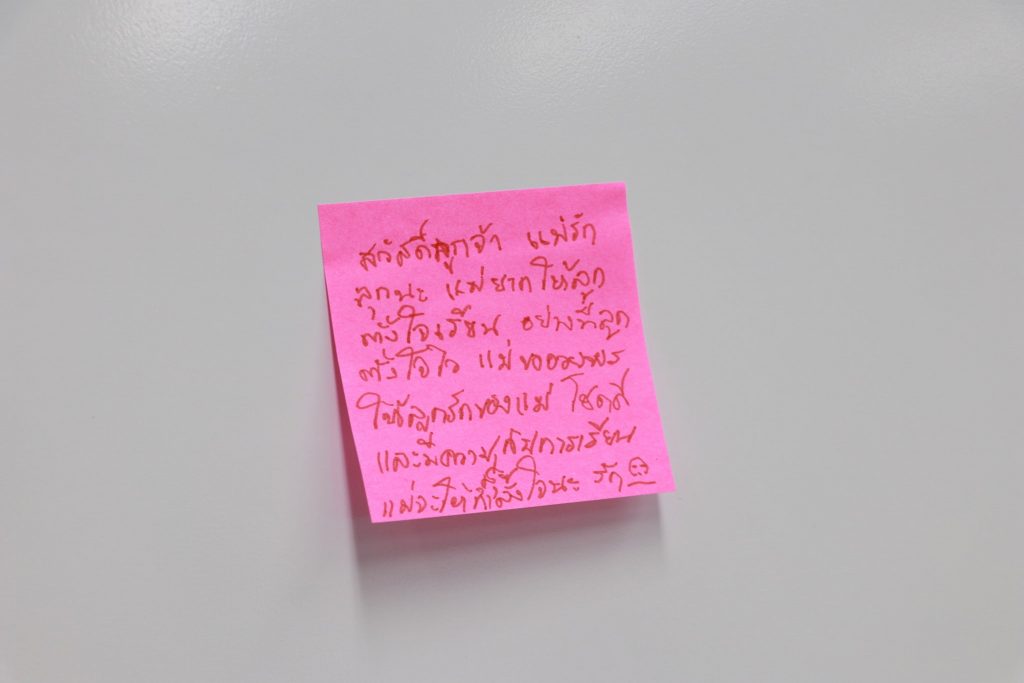 สวัสดีลูกจ้า แม่รัก
ลูกนะ แม่อยากให้ลูก
ตั้งใจเรียน อย่างที่ลูก
ตั้งใจไว้ แม่ขออวยพร
ให้ลูกรักของแม่ โชคดี
และมีความสุขกับการเรียน
แม่จะให้กำลังใจนะ รัก